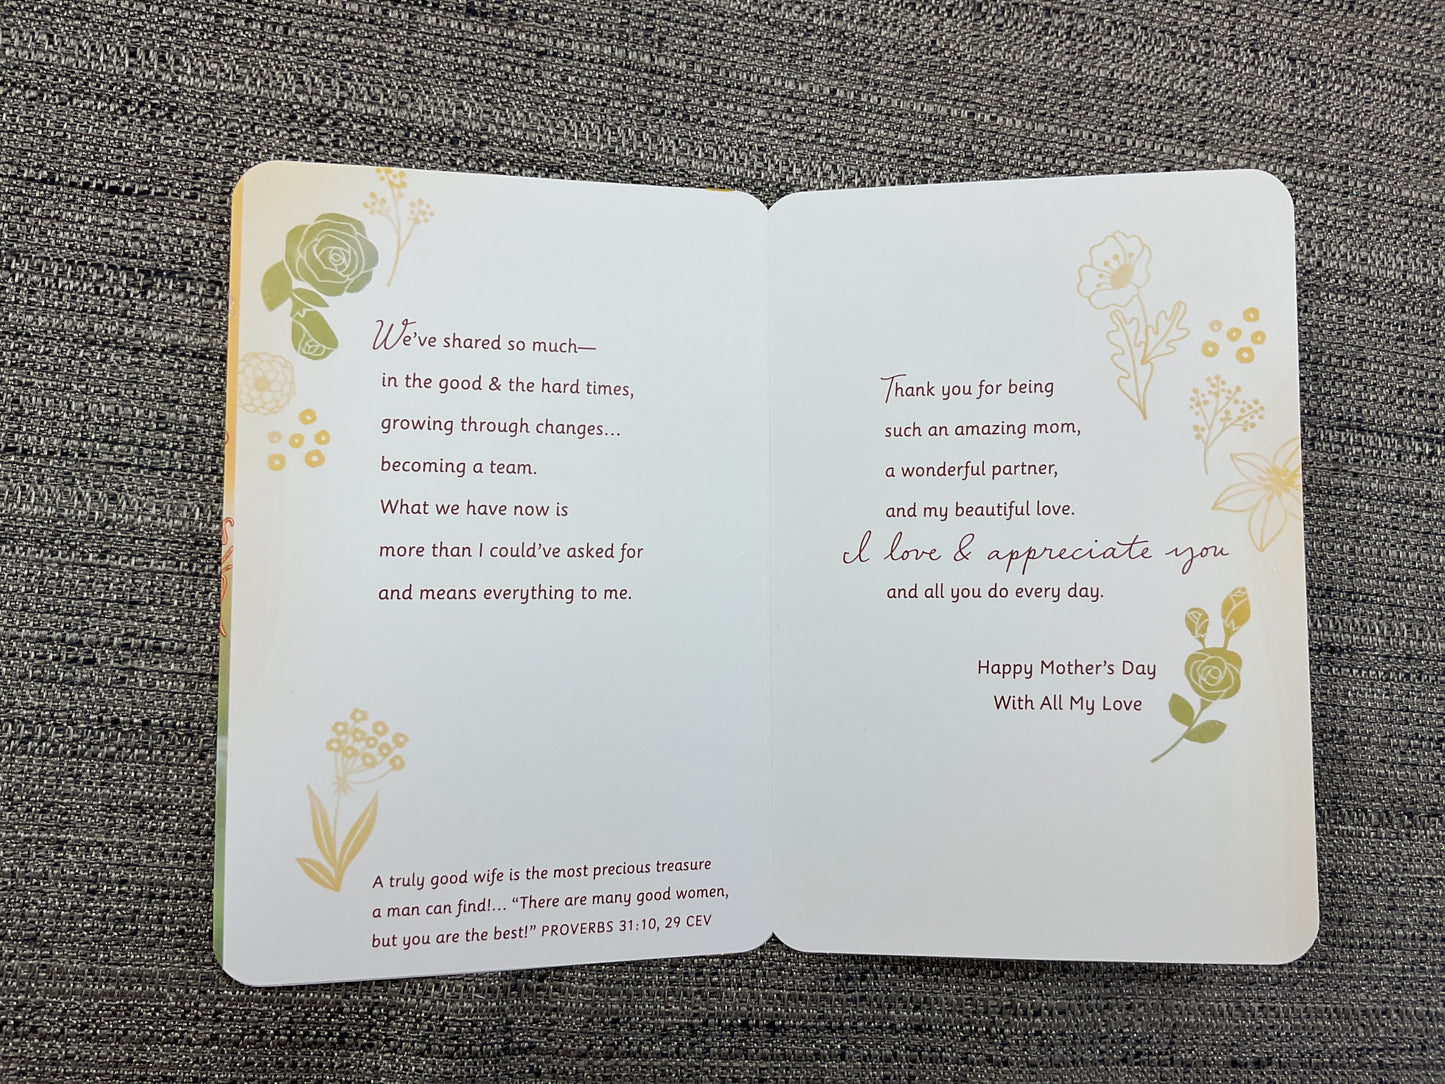 We've shared so much—
in the good & the hard times,
growing through changes...
becoming a team.
What we have now is
more than I could've asked for
and means everything to me.
A truly good wife is the most precious treasure
a man can find!... “There are many good women,
but you are the best!” PROVERBS 31:10, 29 CEV
Thank you for being
such an amazing mom,
a wonderful partner,
and my beautiful love.
I love & appreciate you
and all you do every day.
Happy Mother's Day
With All My Love